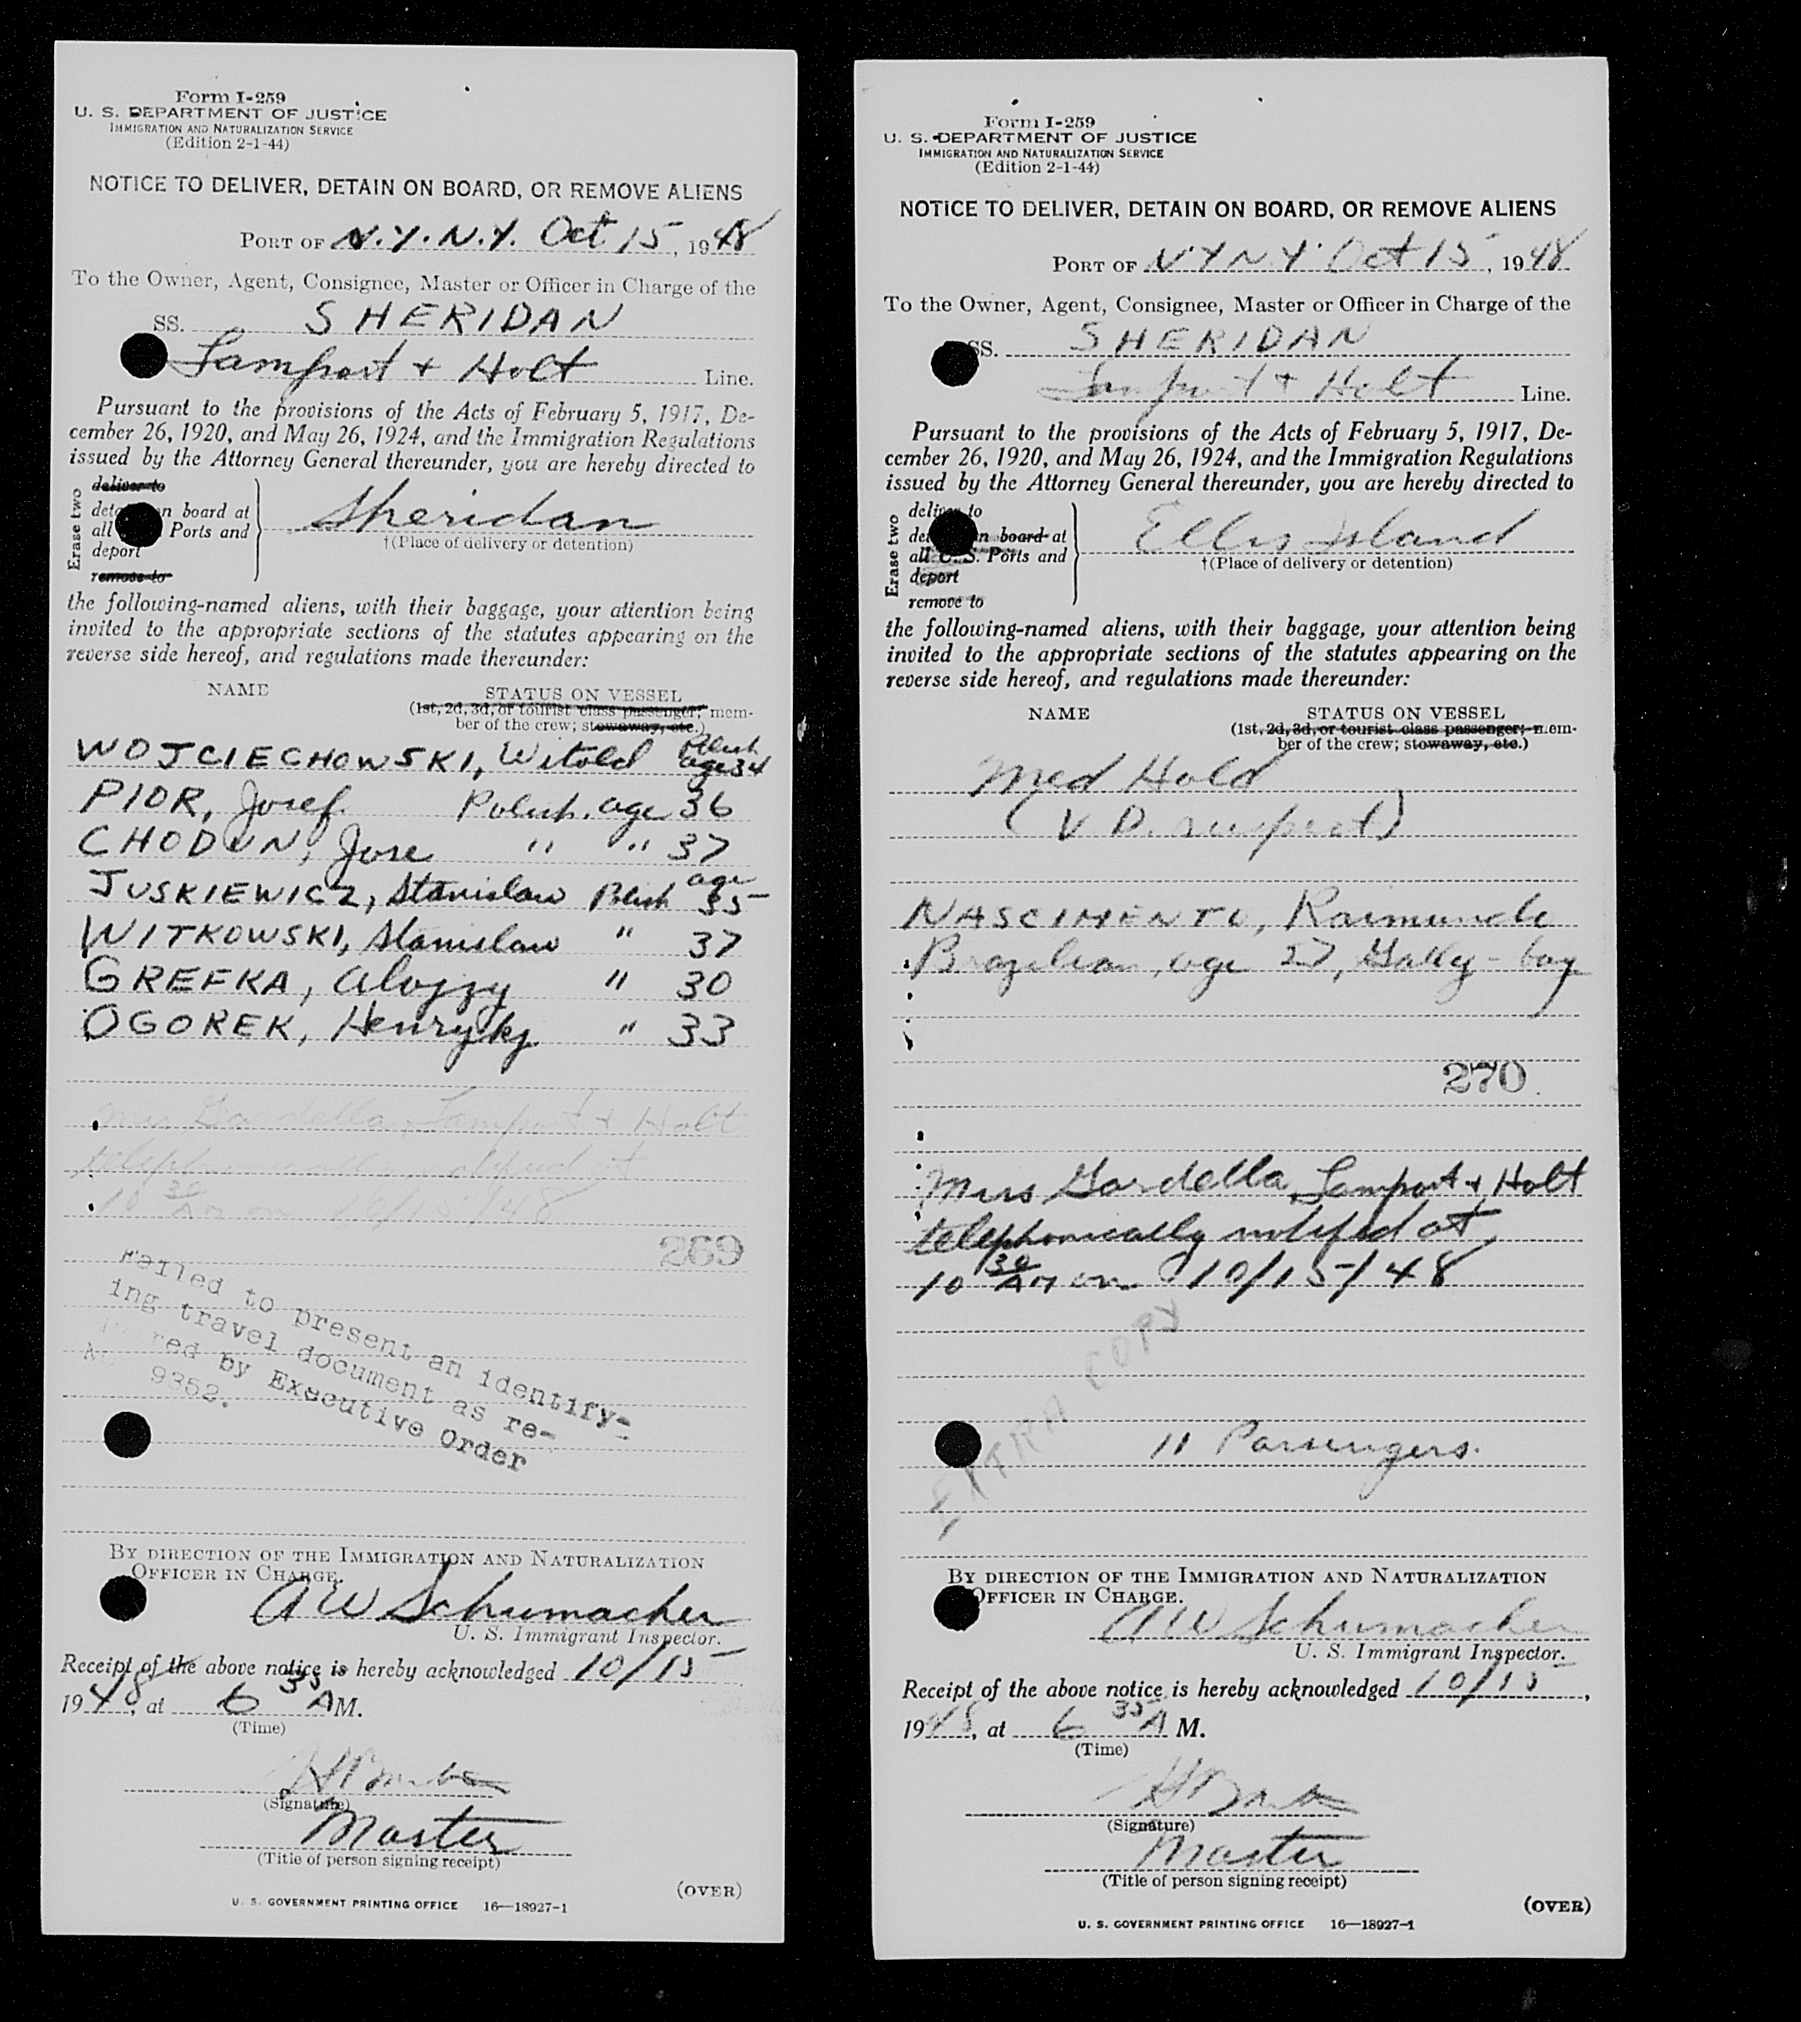 Form I-259
U. S. DEPARTMENT OF JUSTICE
IMMIGRATION AND NATURALIZATION SERVICE
(Edition 2-1-44)
NOTICE TO DELIVER, DETAIN ON BOARD, OR REMOVE ALIENS
PORT OF N.Y.N.Y. Oct 15, 1948
To the Owner, Agent, Consignee, Master or Officer in Charge of the
SS. SHERIDAN
Lamport + Holt Line.
Pursuant to the provisions of the Acts of February 5, 1917, De-
cember 26, 1920, and May 26, 1924, and the Immigration Regulations
issued by the Attorney General thereunder, you are hereby directed to
Erase two
deliver to
n board at
all Ports and
deport
remove to
Sheridan
†(Place of delivery or detention)
the following-named aliens, with their baggage, your attention being
invited to the appropriate sections of the statutes appearing on the
reverse side hereof, and regulations made thereunder:
NAME STATUS ON VESSEL
(1st, 2d, 3d, or tourist class passenger; mem-
ber of the crew; stowaway, etc.)
WOJCIECHOWSKI, Witold Polish age 34
PIOR, Josef Polish. age 36
CHODUN, Jose " " 37
JUSKIEWICZ, Stanislaw Polish age 35
WITKOWSKI, Stanislaw " 37
GREFKA, Alojzy " 30
OGOREK, Henryky " 33
Mrs Gardella, Lamport + Holt
telephonically notified at
10 30 AM on 10/15/48
269
Failed to present an identify-
ing travel document as re-
red by Executive Order
9352.
BY DIRECTION OF THE IMMIGRATION AND NATURALIZATION
OFFICER IN CHARGE.
AW Schumacher
U. S. Immigrant Inspector.
Receipt of the above notice is hereby acknowledged 10/15
1948, at 6 35 AM.
(Time)
(Signature)
Master
(Title of person signing receipt)
(OVER)
U. S. GOVERNMENT PRINTING OFFICE 16—18927-1
Form I-259
U. S. DEPARTMENT OF JUSTICE
IMMIGRATION AND NATURALIZATION SERVICE
(Edition 2-1-44)
NOTICE TO DELIVER, DETAIN ON BOARD, OR REMOVE ALIENS
PORT OF N.Y.N.Y. Oct 15, 1948
To the Owner, Agent, Consignee, Master or Officer in Charge of the
SS. SHERIDAN
Lamport + Holt Line.
Pursuant to the provisions of the Acts of February 5, 1917, De-
cember 26, 1920, and May 26, 1924, and the Immigration Regulations
issued by the Attorney General thereunder, you are hereby directed to
Erase two
deliver to
n board at
all U. S. Ports and
deport
remove to
Ellis Island
†(Place of delivery or detention)
the following-named aliens, with their baggage, your attention being
invited to the appropriate sections of the statutes appearing on the
reverse side hereof, and regulations made thereunder:
NAME STATUS ON VESSEL
(1st, 2d, 3d, or tourist class passenger; mem-
ber of the crew; stowaway, etc.)
Med Hold
(V D. suspect)
NASCIMENTO, Raimundo
Brazilian, age 27, Gally-boy
270
Mrs Gardella, Lamport + Holt
telephonically notified at
10 30 AM on 10/15/48
EXTRA COPY
11 Passengers.
BY DIRECTION OF THE IMMIGRATION AND NATURALIZATION
OFFICER IN CHARGE.
AW Schumacher
U. S. Immigrant Inspector.
Receipt of the above notice is hereby acknowledged 10/15,
1948, at 6 35 A M.
(Time)
(Signature)
Master
(Title of person signing receipt)
(OVER)
U. S. GOVERNMENT PRINTING OFFICE 16—18927-1